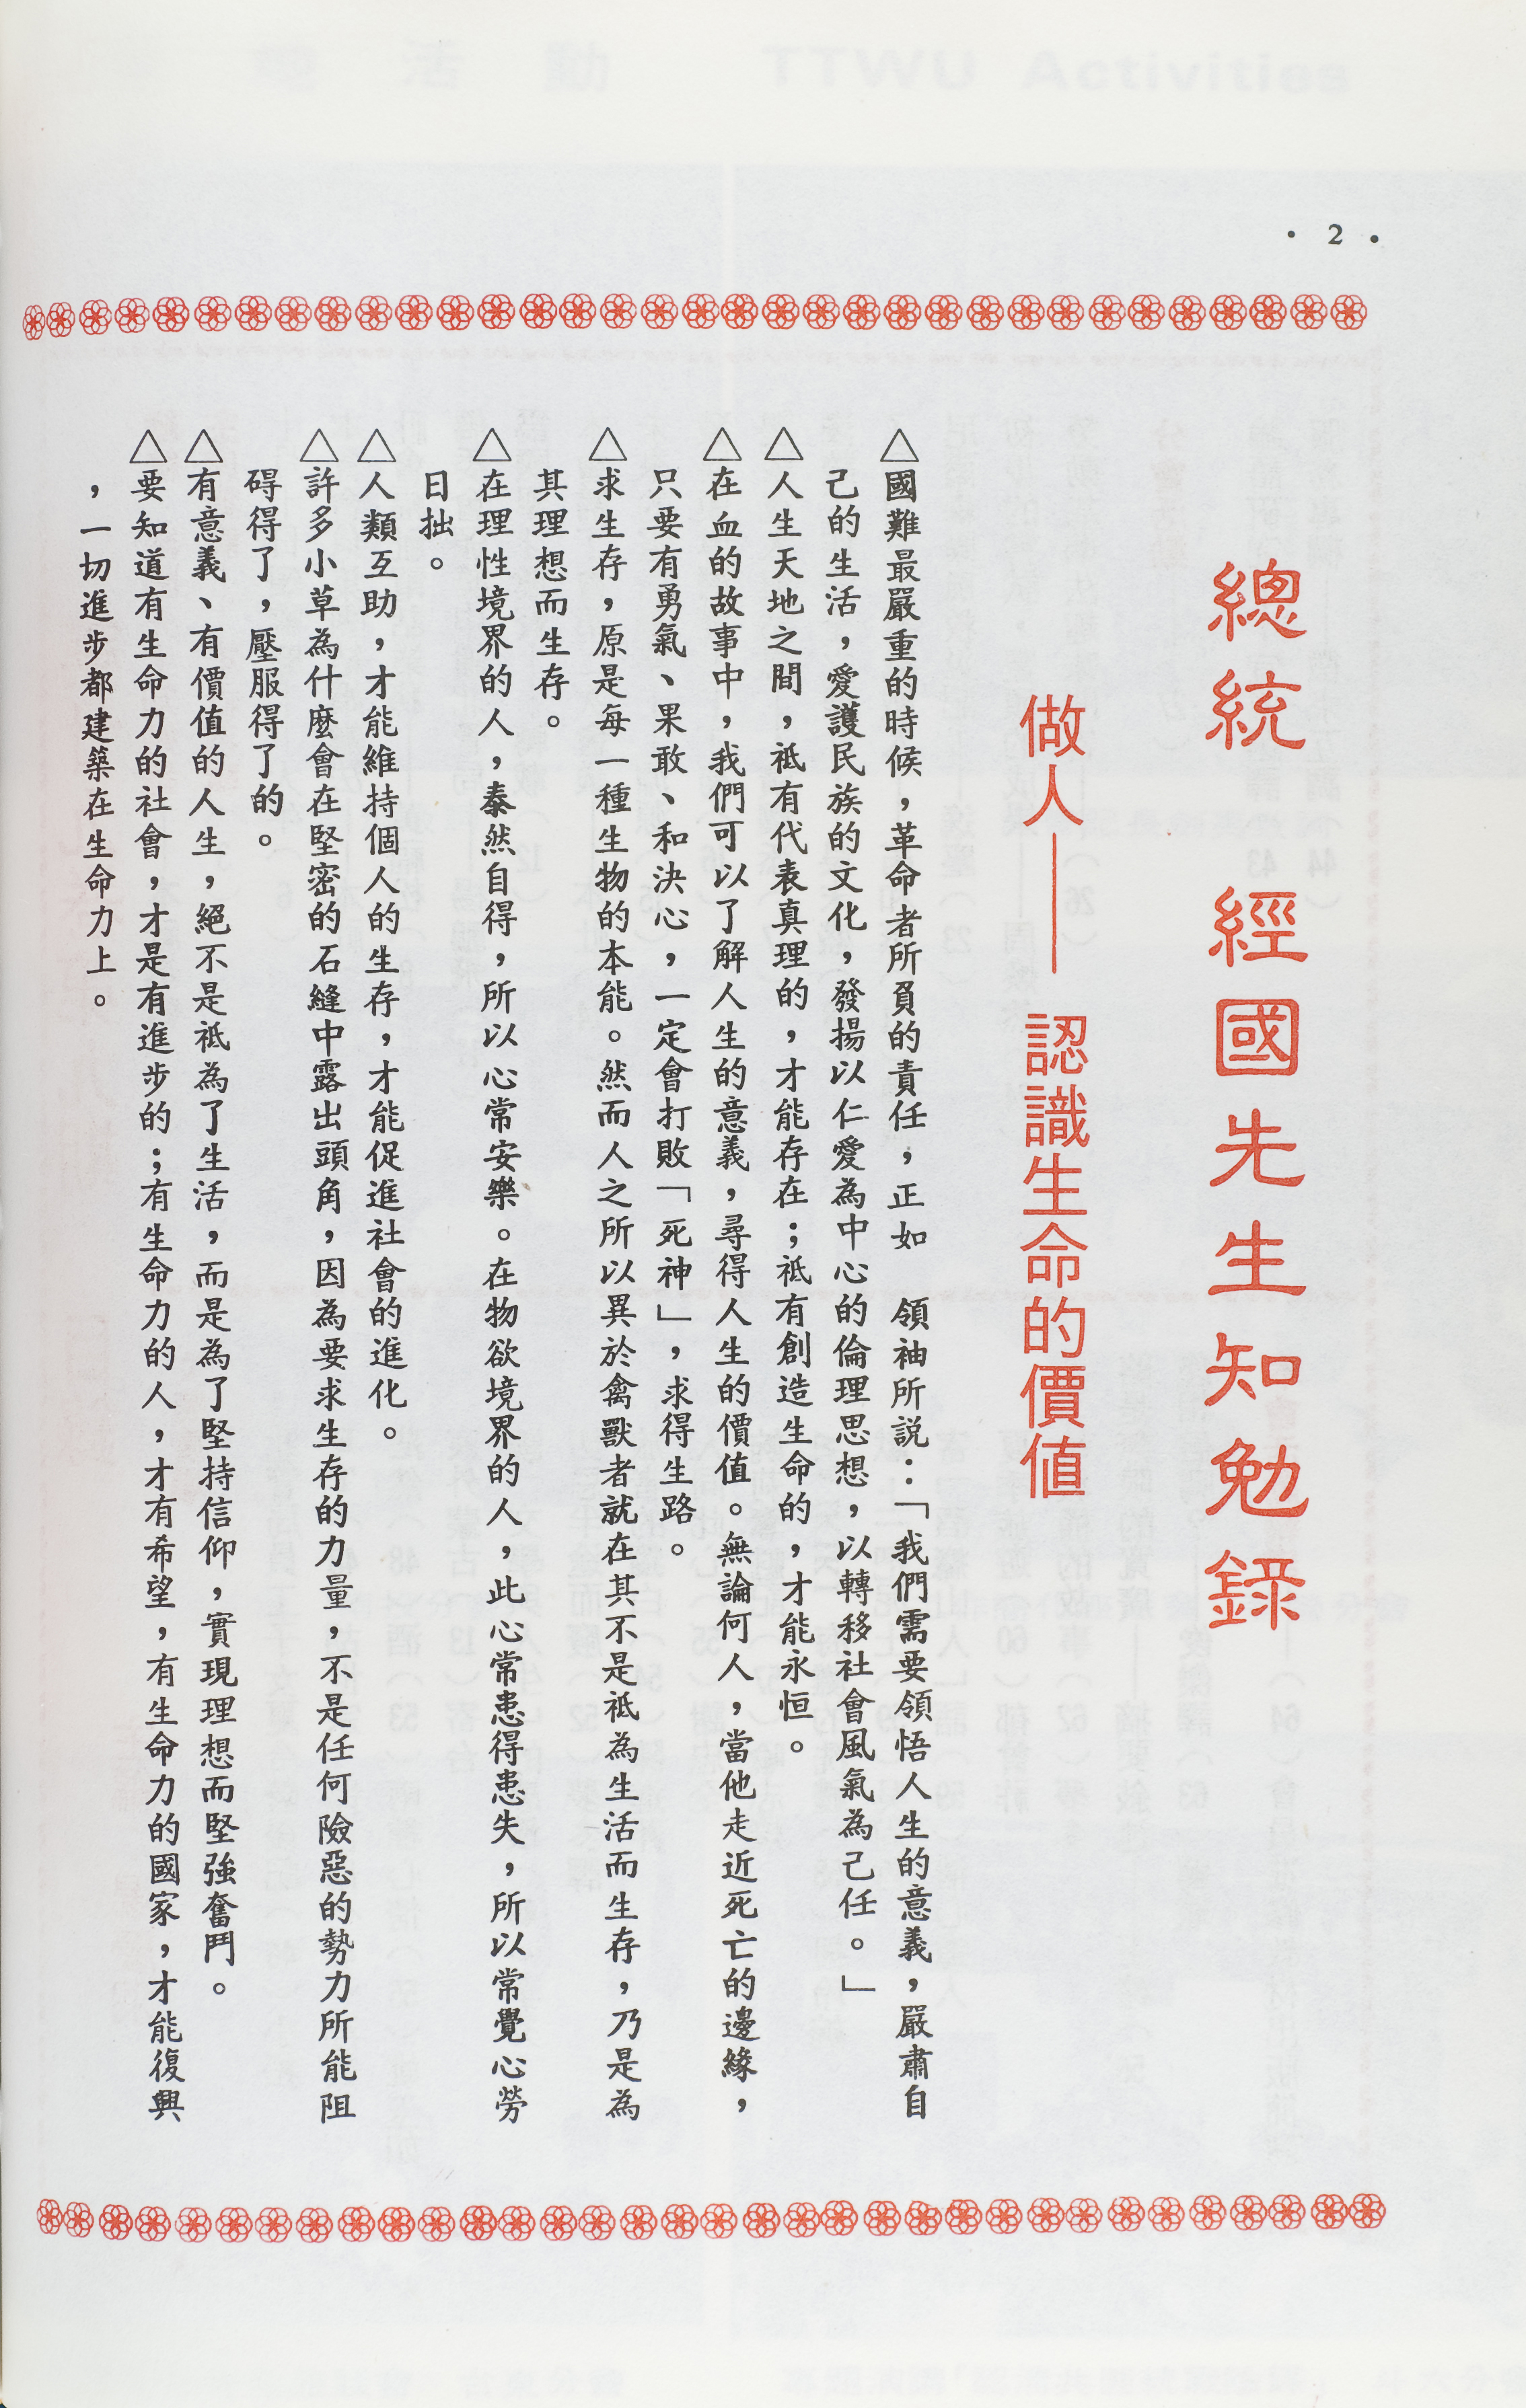 ・2・
總統 經國先生知勉錄
做人——認識生命的價值
△國難最嚴重的時候，革命者所負的責任，正如　領袖所説：「我們需要領悟人生的意義，嚴肅自
己的生活，愛護民族的文化，發揚以仁愛為中心的倫理思想，以轉移社會風氣為己任。」
△人生天地之間，祗有代表真理的，才能存在；祗有創造生命的，才能永恒。
△在血的故事中，我們可以了解人生的意義，尋得人生的價值。無論何人，當他走近死亡的邊緣，
只要有勇氣、果敢、和決心，一定會打敗「死神」，求得生路。
△求生存，原是每一種生物的本能。然而人之所以異於禽獸者就在其不是祗為生活而生存，乃是為
其理想而生存。
△在理性境界的人，泰然自得，所以心常安樂。在物欲境界的人，此心常患得患失，所以常覺心勞
日拙。
△人類互助，才能維持個人的生存，才能促進社會的進化。
△許多小草為什麼會在堅密的石縫中露出頭角，因為要求生存的力量，不是任何險惡的勢力所能阻
碍得了，壓服得了的。
△有意義、有價值的人生，絕不是祗為了生活，而是為了堅持信仰，實現理想而堅強奮鬥。
△要知道有生命力的社會，才是有進步的；有生命力的人，才有希望，有生命力的國家，才能復興
，一切進步都建築在生命力上。